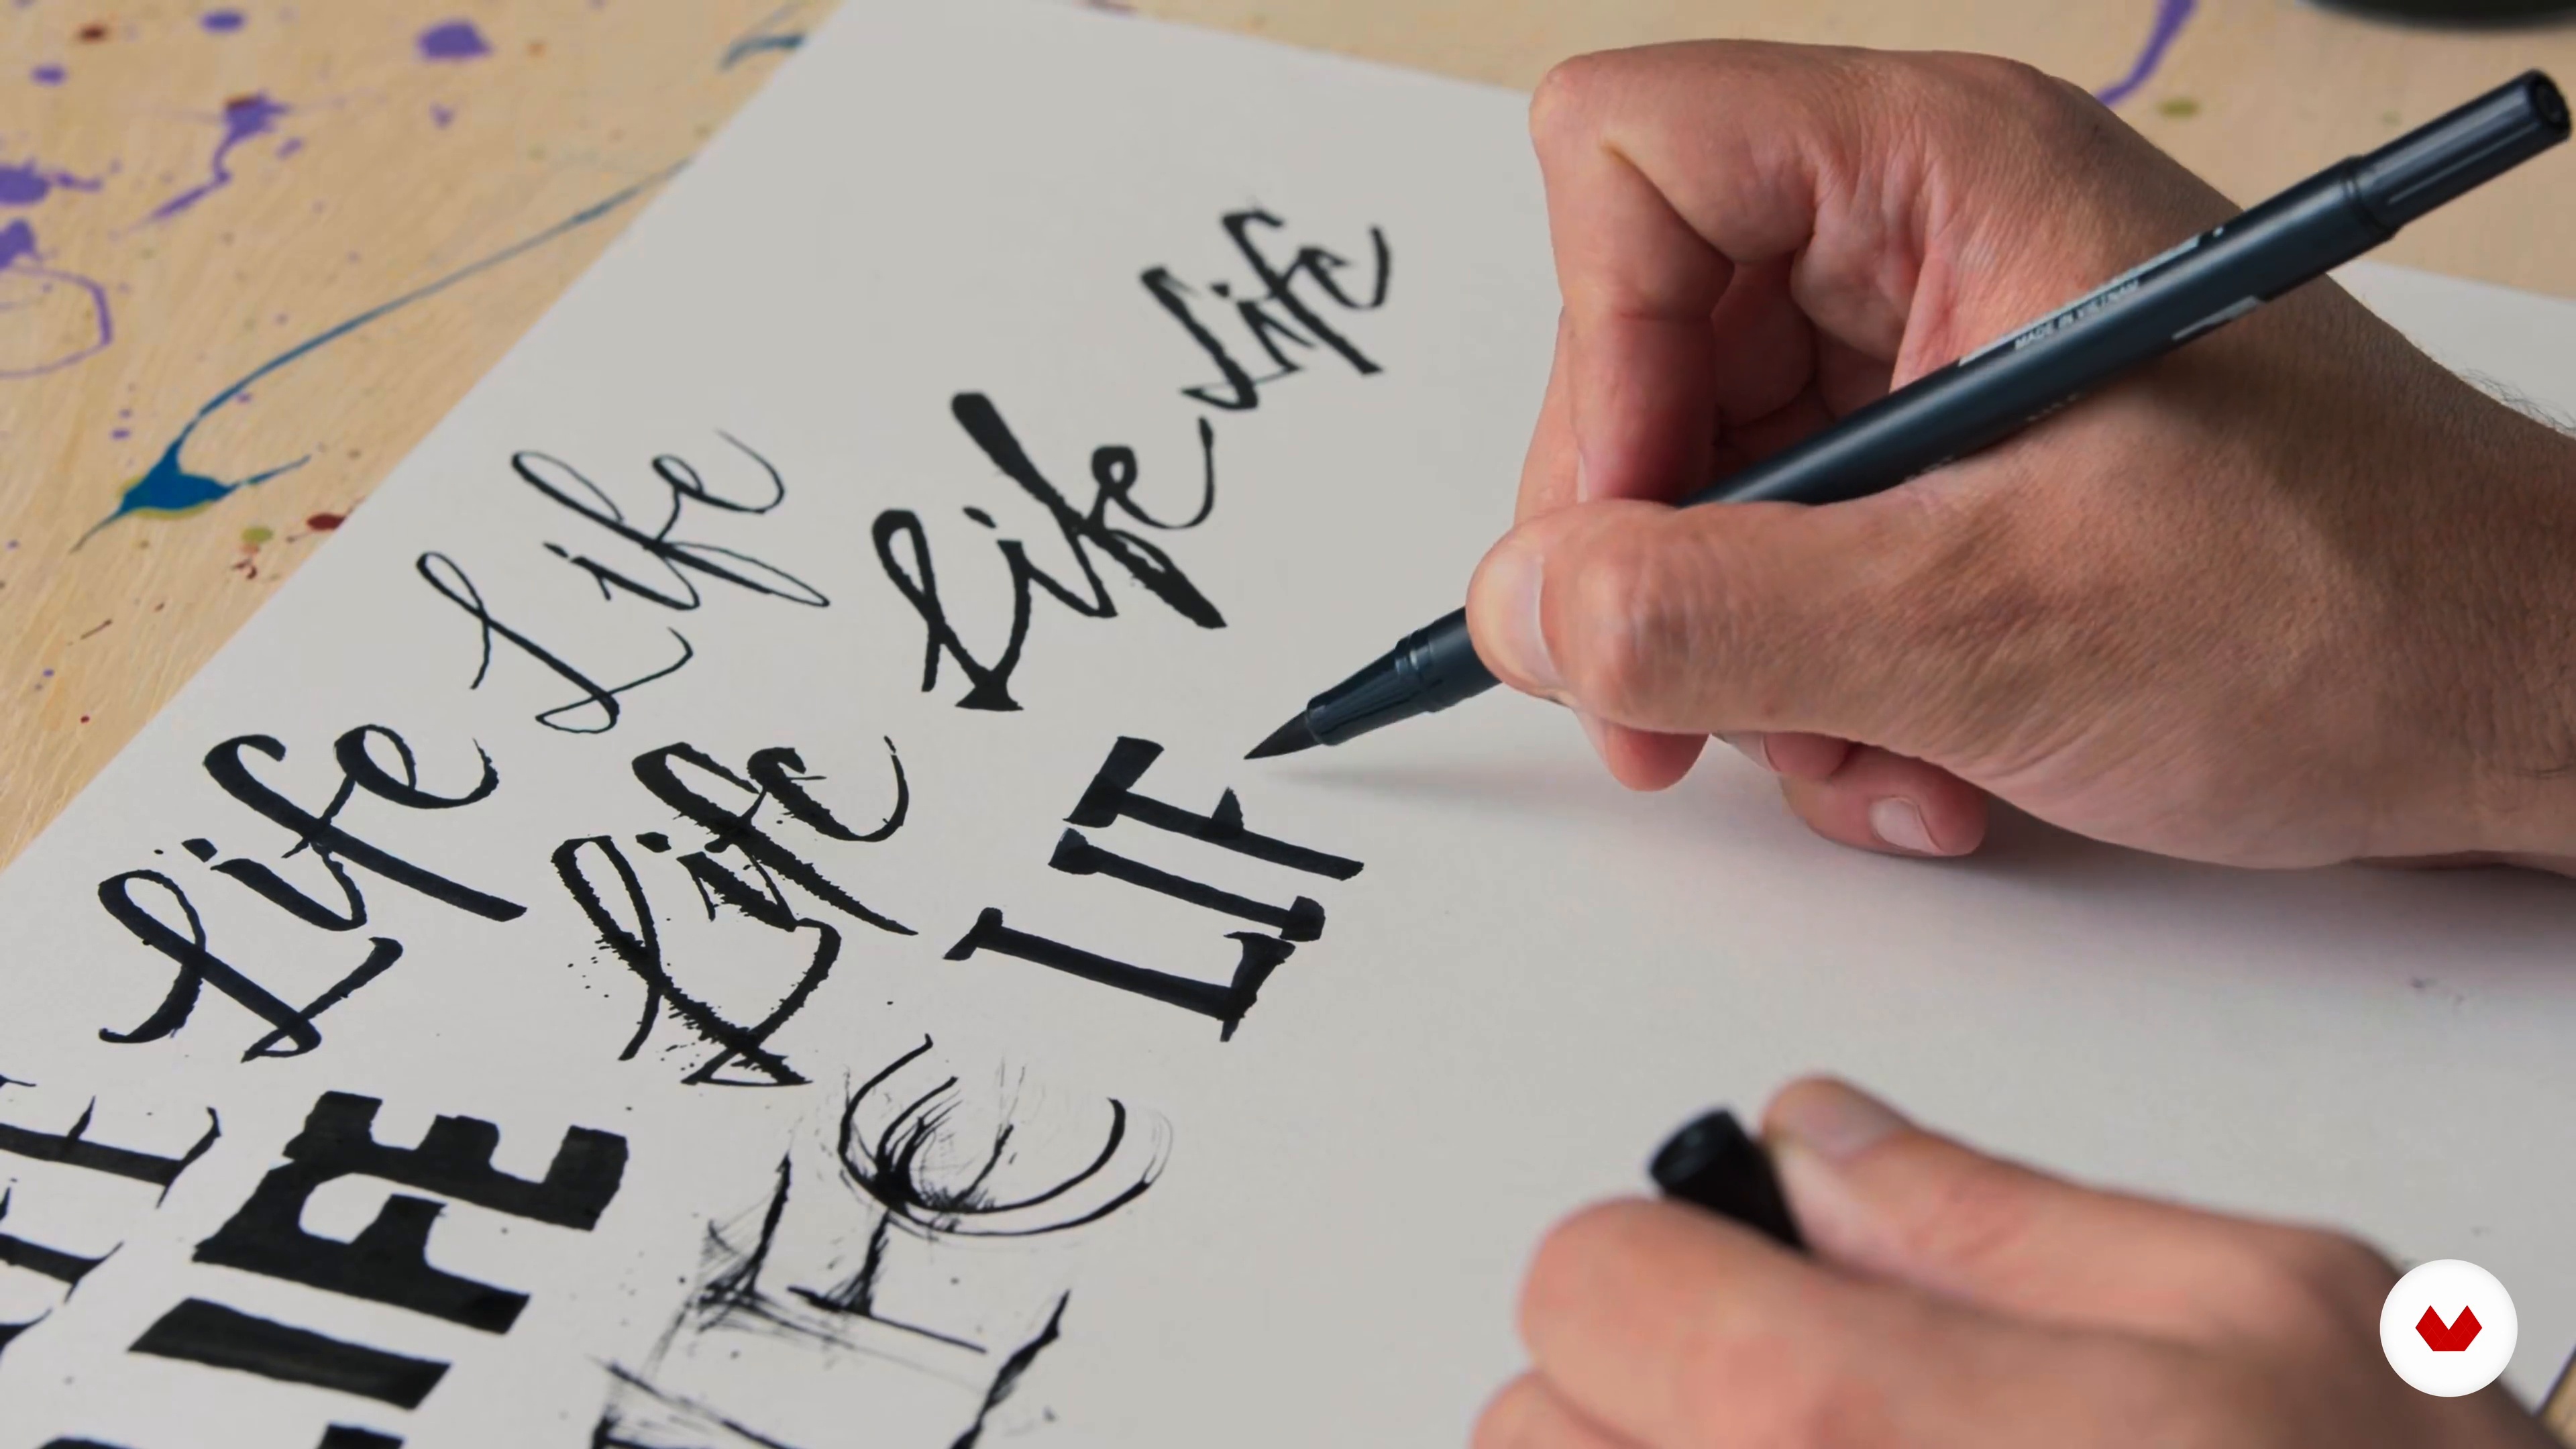 Life
Life
Life
Life
Life
LIF
IFE
LIFE
LIFE
MADE IN VIETNAM